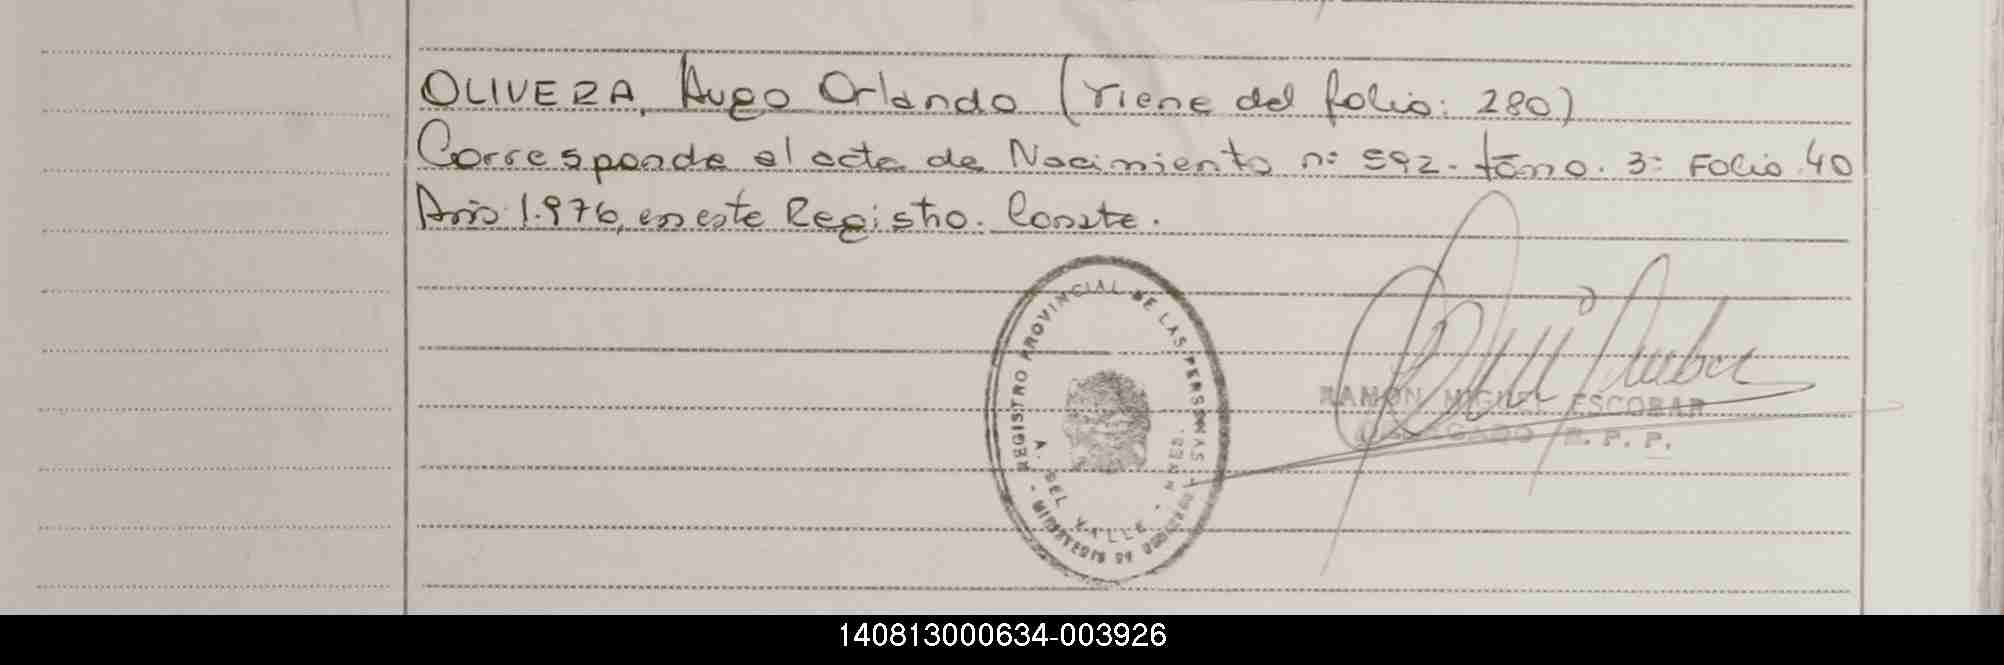 OLIVERA, Hugo Orlando (viene del folio: 280)
Corresponde al acta de Nacimiento nº 592. tomo. 3º Folio 40
Año 1.976, en este Registro. Conste.
REGISTRO PROVINCIAL DE LAS PERSONAS - MINISTERIO DE GOBIERNO -
A. DEL VALLE -
RAMON MIGUEL ESCOBAR
R. P. P.
140813000634-003926